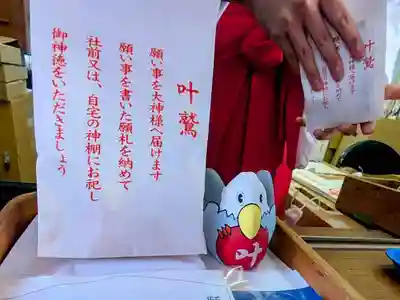 叶鷲
願い事を大神様へ届けます
願い事を書いた願札を納めて
社前又は、自宅の神棚にお祀し
御神徳をいただきましょう
叶鷲
叶